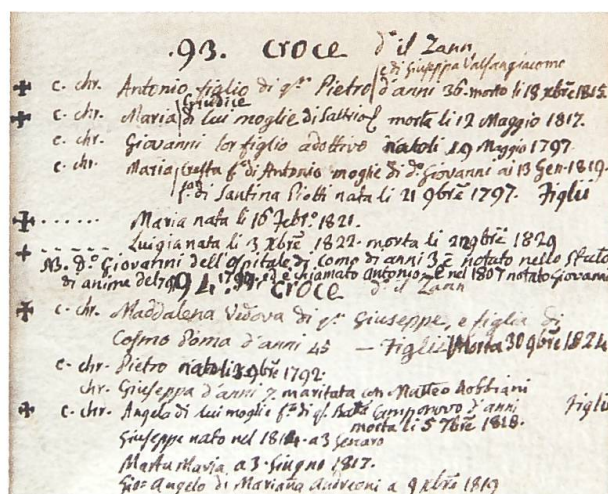 93. Croce d.º il Zann
e di Giuseppa Valsangiacome
c. chr. Antonio figlio di q.m Pietro d'anni 36. morto li 18 xbre 1815
Giudice
c. chr. Maria di lui moglie di morta li 12 Maggio 1817.
c. chr. Giovanni lor figlio adottivo nato li 19 Maggio 1797
c. chr. Maria f.a di Antonio moglie di d.º Giovanni ai 13 Gen. 1819.
f.a di Santina nata li 21 9bre 1797. Figli
Maria nata li 16 Febr.º 1821.
Luigia nata li 3 xbre 1822. morta li 9bre 1829
NB. d.º Giovanni dell'Ospitale di Como di anni 3 è notato nello Stato
di anime del 1799 ed è chiamato Antonio. E nel 1807 notato Giovanni
94. Croce d.º il Zann
c. chr. Maddalena Vedova di q.m Giuseppe, e figlia di
Cosmo Poma d'anni 45 — Figli Morta 30 9bre 1824
c. chr. Pietro nato li 9bre 1792.
chr. Giuseppa d'anni 7. maritata con Matteo
c. chr. Angela di lui moglie f.a di q. Camponovo d'anni Figli
morta li 5 7bre 1818.
Giuseppe nato nel 1814. a 3 Gennaro
Marta Maria, a 3 Giugno 1817.
Gio: Angelo di Mariana Andreoni a 9 xbre 1819